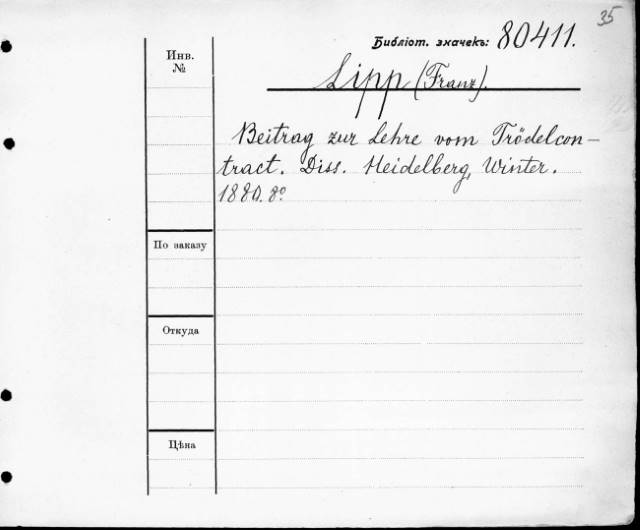 35
Библіот. значекъ: 80411.
Инв.
№
Lipp (Franz).
Beitrag zur Lehre vom Trödelcon-
tract. Diss. Heidelberg, Winter.
1880. 8º
По заказу
Откуда
Цѣна